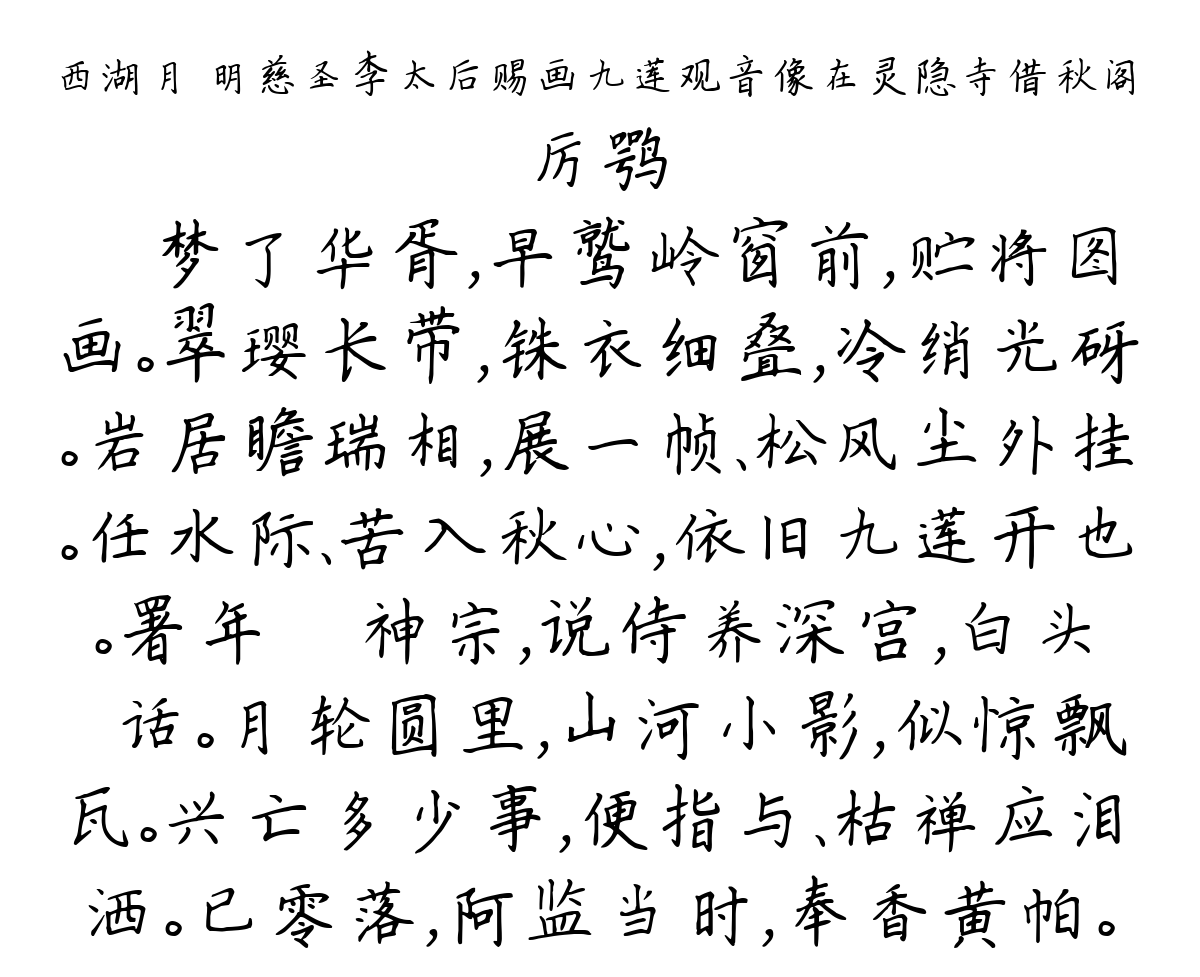 西湖月 明慈圣李太后赐画九莲观音像在灵隐寺借秋阁
厉鹗
梦了华胥,早鹫岭窗前,贮将图
画。翠璎长带,铢衣细叠,冷绡光砑
。岩居瞻瑞相,展一帧、松风尘外挂
。任水际、苦入秋心,依旧九莲开也
。署年 神宗,说侍养深宫,白头
话。月轮圆里,山河小影,似惊飘
瓦。兴亡多少事,便指与、枯禅应泪
洒。已零落,阿监当时,奉香黄帕。